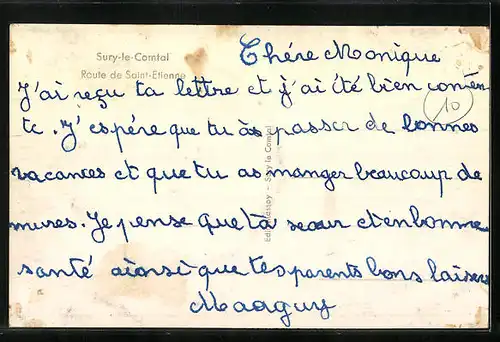 Sury-le-Comtal
Route de Saint-Etienne
Chére Monique
J'ai reçu ta lettre et j'ai été bien conten
te. J'espére que tu às passer de bonnes
10
vacances et que tu as manger beaucoup de
mures. Je pense que tà seour et en bonne
santé ainsi que tes parents bons baisers
Maaguy
Sury le Comtal